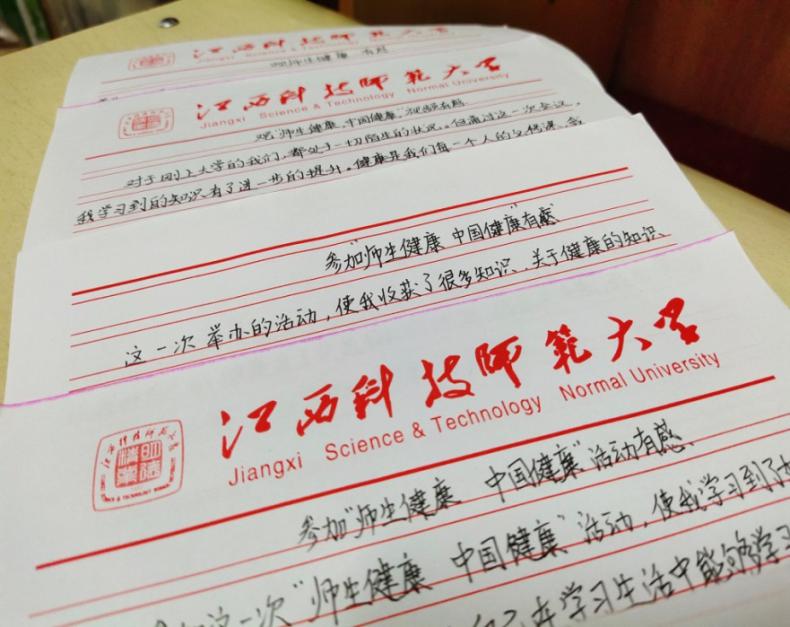 江西科技师范大学
Jiangxi Science & Technology Normal
师生健康 有感
江西科技师范大学
Jiangxi Science & Technology Normal University
观"师生健康，中国健康"视频有感
对于刚上大学的我们，都处于一切陌生的状况。但通过这一次会议，
我学习到的知识有了进一步的提升。健康是我们每一个人的必修课，
参加"师生健康 中国健康"有感
这一次举办的活动，使我收获了很多知识、关于健康的知识、
江西科技师范大学
Jiangxi Science & Technology Normal University
参加"师生健康 中国健康"活动有感、
这一次"师生健康 中国健康"活动，使我学习到了
在学习生活中能够学习